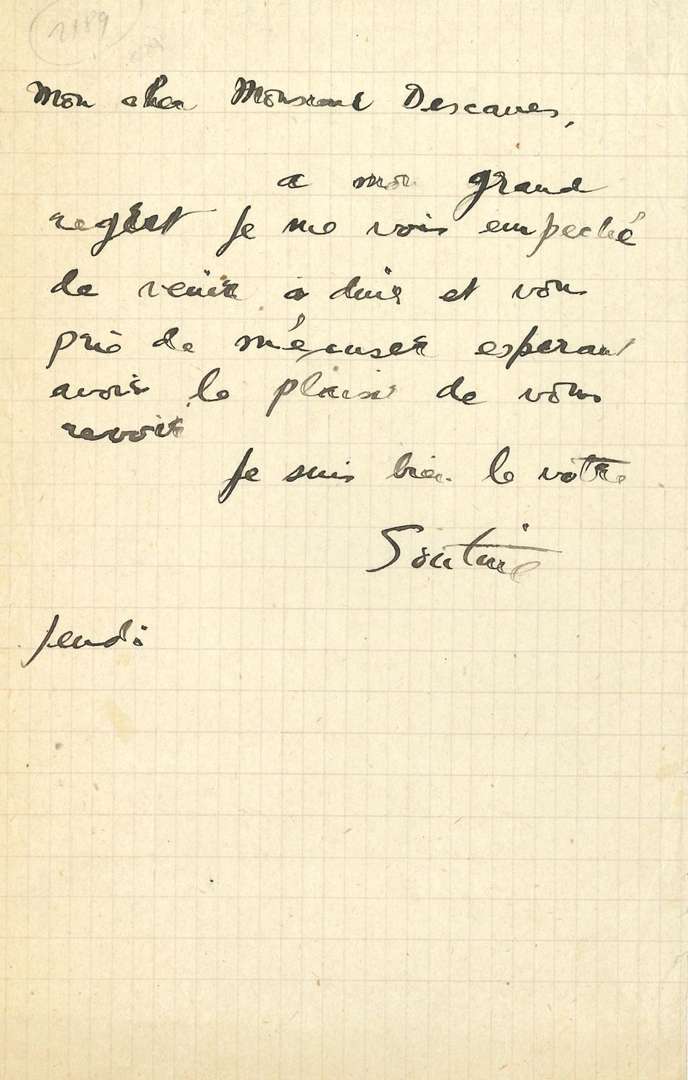 2189
Mon cher Monsieur Descaves,
a mon grand
regret je me vois empeché
de venir a diner et vous
prie de m'écuser esperant
avoir le plaisir de vous
revoir
Je suis bien le votre
Soutine
Jeudi